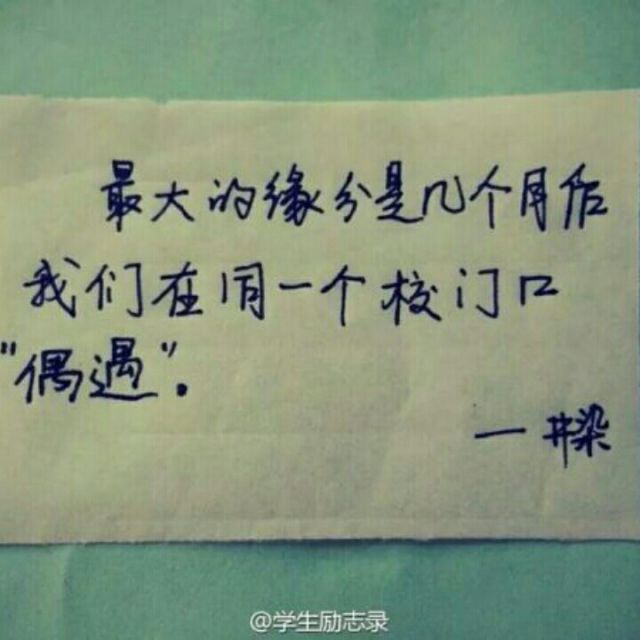 最大的缘分是几个月后
我们在同一个校门口
"偶遇".
—井染
@学生励志录